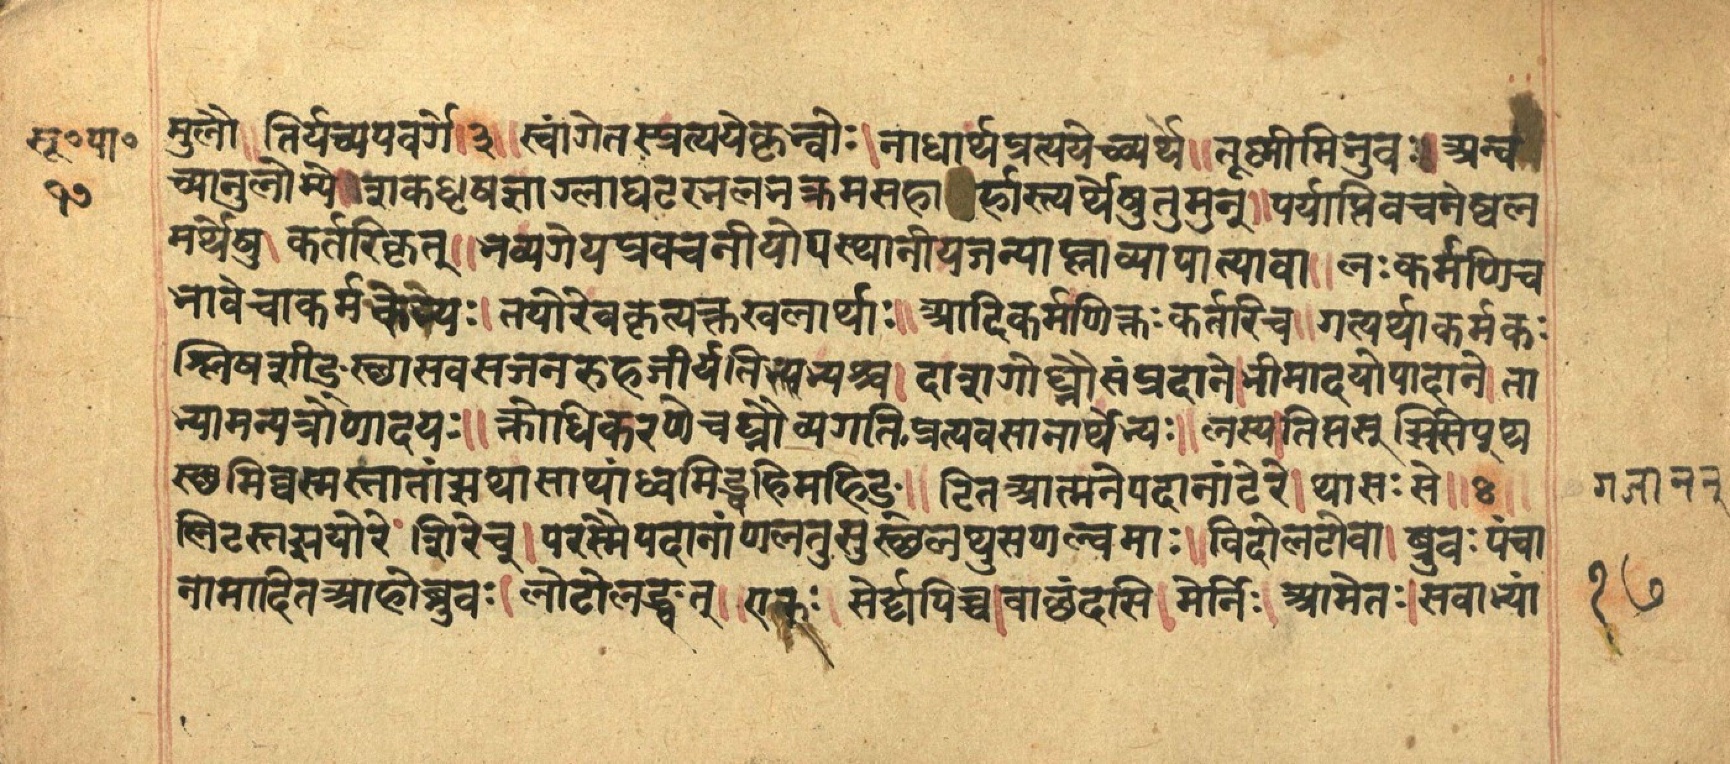 सू॰पा॰
१७
मुलौ ॥ तिर्यच्यपवर्गे ॥ ३ ॥ स्वांगेतस्प्रत्ययेकृभ्वोः । नाधार्थप्रत्ययेच्व्यर्थे ॥ तूष्णीमिभुवः ॥ अन्व
च्यानुलोम्ये ॥ शकधृषज्ञाग्लाघटरभलभक्रमसहा र्हास्त्यर्थेषुतुमुन् ॥ पर्याप्तिवचनेष्वल
मर्थेषु । कर्तरिकृत् ॥ भव्यगेयप्रवचनीयोपस्थानीयजन्याप्लाव्यापात्यावा ॥ लःकर्मणिच
भावेचाकर्मकेभ्यः । तयोरेवकृत्यक्तखलर्थाः ॥ आदिकर्मणिक्तःकर्तरिच ॥ गत्यर्थाकर्मकः
श्लिषशीङ्स्थासवसजनरुहजीर्यतिभ्यश्च । दाशगोघ्नौसंप्रदाने । भीमादयोपादाने । ता
भ्यामन्यत्रोणादयः ॥ क्तोधिकरणेचध्रौव्यगतिप्रत्यवसानार्थेभ्यः ॥ लस्य । तिप्तस्झिसिप्थ
स्थमिब्वस्मस्तातांझथासाथांध्वमिड्वहिमहिङ् ॥ टितआत्मनेपदानांटेरे । थासःसे ॥ ४ ॥
लिटस्तझयोरेशिरेच् । परस्मैपदानांणलतुसुस्थलथुसणल्वमाः ॥ विदोलटोवा । ब्रुवःपंचा
नामादितआहोब्रुवः । लोटोलङ्वत् ॥ एरुः । सेर्ह्यपिच्च । वाछंदसि । मेर्निः । आमेतः । सवाभ्यां
गजानन्
१७